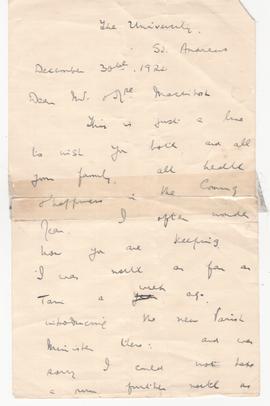 The University
St. Andrews
December 30th, 192
Dear Mr. & Mrs. Macintosh
This is just a line
to wish you both and all
your family, all health
& happiness in the Coming
Year. I often wonder
how you are keeping.
I was north as far as
Tain a week ago.
introducing the new Parish
Minister there: and was
sorry I could not take
a run further north as